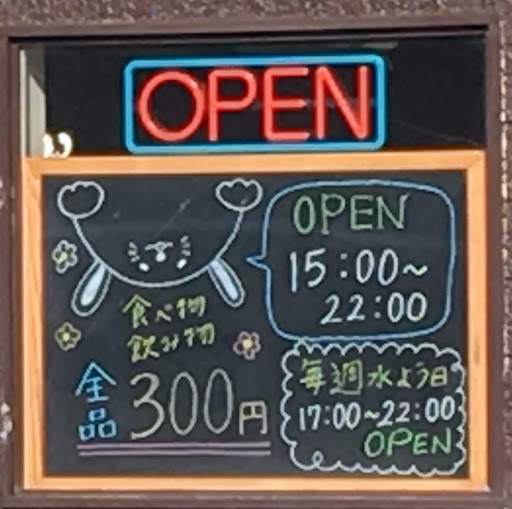 OPEN
OPEN
15:00~
22:00
食べ物
飲み物
全品300円
毎週水よう日
17:00~22:00
OPEN